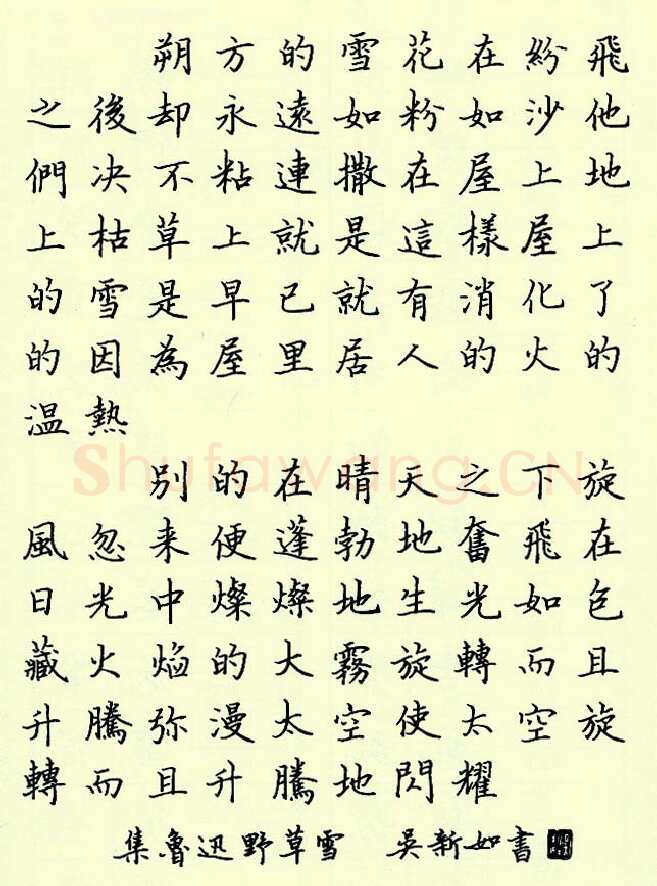 朔方的雪花在紛飛
之後却永遠如粉如沙他
們决不粘連撒在屋上地
上枯草上就是這樣屋上
的雪是早已就有消化了
的因為屋里居人的火的
温熱
別的在晴天之下旋
風忽来便蓬勃地奮飛在
日光中燦燦地生光如包
藏火焰的大霧旋轉而且
升騰弥漫太空使太空旋
轉而且升騰地閃耀
集魯迅野草雪 吳新如書
Shufawang.CN